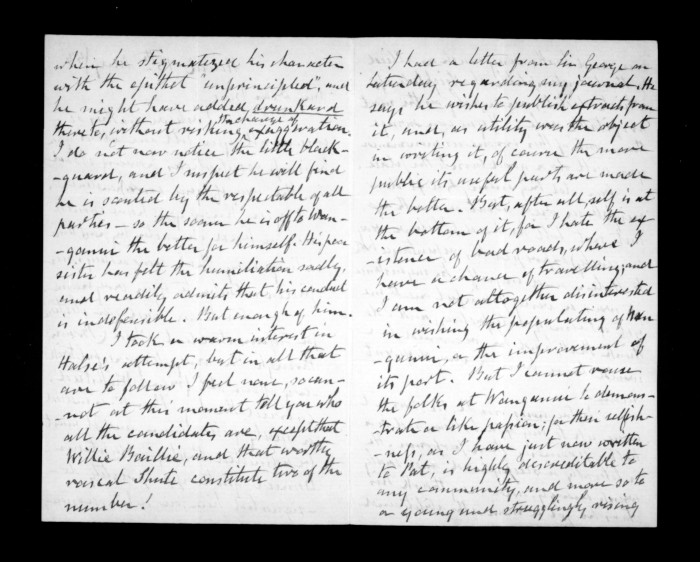 when he stigmatized his character
with the epithet "unprincipled", and
he might have added drunkard
thereto, without risking the charge of exaggeration.
I do not now notice the little black-
-guard, and I suspect he will find
he is scouted by the respectable of all
parties – so the sooner he is off to Wan-
-ganui the better for himself. His poor
sister has felt the humiliation sadly,
and readily admits that his conduct
is indefensible. But enough of him.
I took a warm interest in
Halse's attempt, but in all that
are to follow I feel none, so can-
-not at this moment tell you who
all the candidates are, except that
Willie Baillie, and that worthy
rascal Shute constitute two of the
number!
I had a letter from Sir George on
Saturday regarding my journal. He
says he wishes to publish extracts from
it, and, as utility was the object
in writing it, of course the more
public its useful parts are made
the better. But, after all, self is at
the bottom of it, for I hate the ex
-istence of bad roads, where I
have a chance of travelling; and
I am not altogether disinterested
in wishing the populating of Wan
-ganui, or the improvement of
its port. But I cannot rouse
the folks at Wanganui to demons-
-trate a like passion; for their selfish-
-ness, as I have just now written
to Pat, is highly discreditable to
any community, and more so to
a young and strugglingly rising